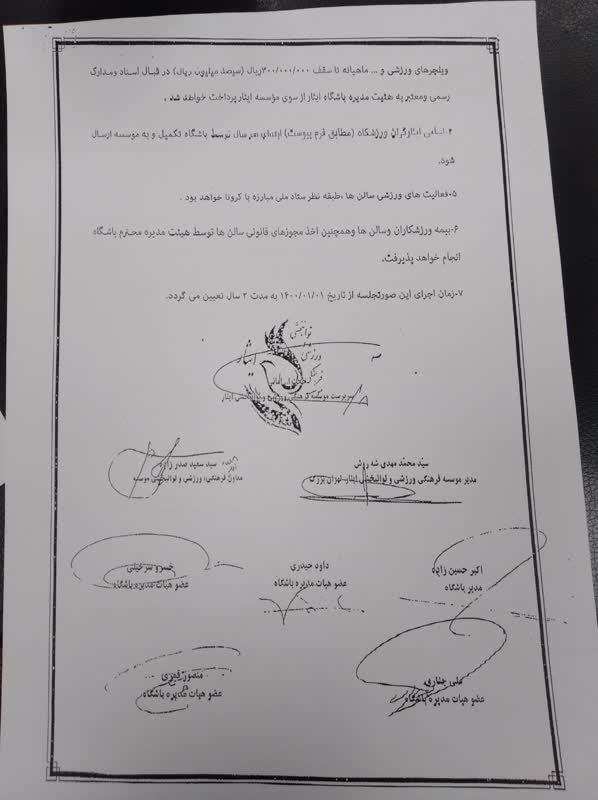 ویلچرهای ورزشی و ... ماهیانه تا سقف ۳۰۰/۰۰۰/۰۰۰ریال (سیصد میلیون ریال) در قبال اسناد ومدارک
رسمی ومعتبر به هئیت مدیره باشگاه ایثار از سوی مؤسسه ایثار پرداخت خواهد شد .
۴-اسامی ایثارگران ورزشکاه (مطابق فرم پیوست) ابتدای هر سال توسط باشگاه تکمیل و به موسسه ارسال
شود.
۵-فعالیت های ورزشی سالن ها ،طبقه نظر ستاد ملی مبارزه با کرونا خواهد بود .
۶-بیمه ورزشکاران وسالن ها وهمچنین اخذ مجوزهای قانونی سالن ها توسط هیئت مدیره محترم باشگاه
انجام خواهد پذیرفت.
۷-زمان اجرای این صورتجلسه از تاریخ ۱۴۰۰/۰۱/۰۱ به مدت ۲ سال تعیین می گردد.
توانبخشی
ورزشی
ایثار
فرهنگی
سرپرست موسسه فرهنگی ورزشی و توانبخشی ایثار
سید محمد مهدی شه روش
مدیر موسسه فرهنگی ورزشی و توانبخشی ایثار تهران بزرگ
سید سعید صدر زاده
معاون فرهنگی، ورزشی و توانبخشی موسسه
اکبر حسین زاده
مدیر باشگاه
داود حیدری
عضو هیات مدیره باشگاه
خسرو
عضو هیات مدیره باشگاه
علی
عضو هیات مدیره باشگاه
منصور
عضو هیات مدیره باشگاه